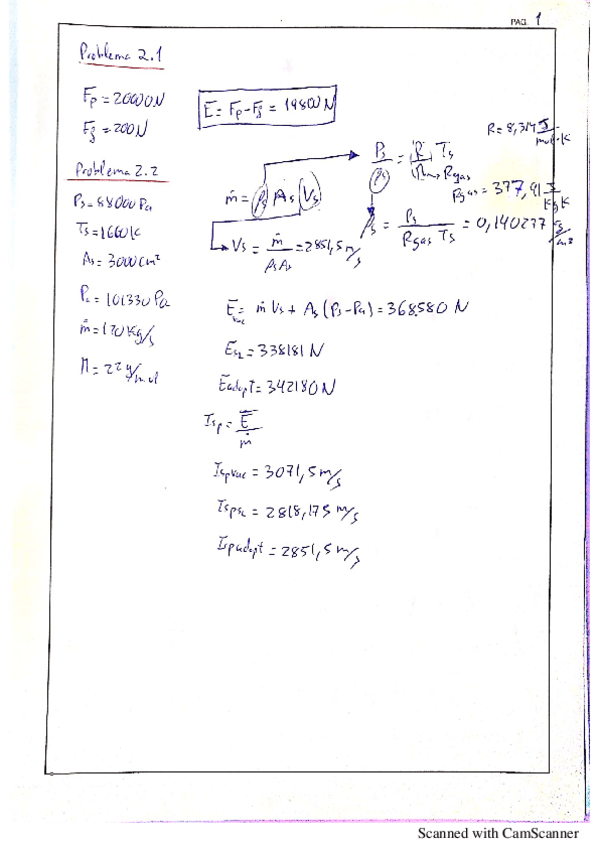 PAG. 1
Problema 2.1
Fp = 20000N
Fg = 200N
E = Fp - Fg = 19800N
Problema 2.2
Ps = 88000 Pa
Ts = 1660 K
As = 3000 cm²
Pa = 101330 Pa
ṁ = 120 Kg/s
M = 22 g/mol
ṁ = ρs As Vs
Ps/ρs = R/M Ts
→ Rgas
R = 8,314 J/mol·K
Rgas = 377,91 J/Kg K
ρs = Ps/(Rgas Ts) = 0,140277
Vs = ṁ/(ρs As) = 2851,5 m/s
Evac = ṁ Vs + As (Ps - Pa) = 368580 N
EsL = 338181 N
Eadapt = 342180 N
Isp = E/ṁ
Ispvac = 3071,5 m/s
IspsL = 2818,175 m/s
Ispadapt = 2851,5 m/s
Scanned with CamScanner